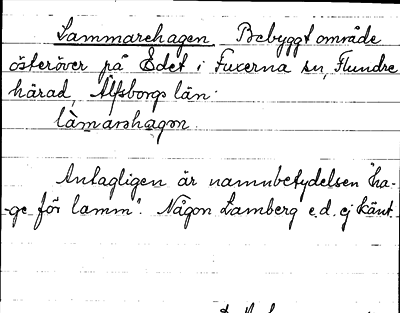 Lammarehagen Bebyggt område
österöver på Edet i Fuxerna sn, Flundre
härad, Älfsborgs län.
làmarəhagən.
Antagligen är namnbetydelsen "ha-
ge för lamm". Någon Lamberg e.d. ej känt.